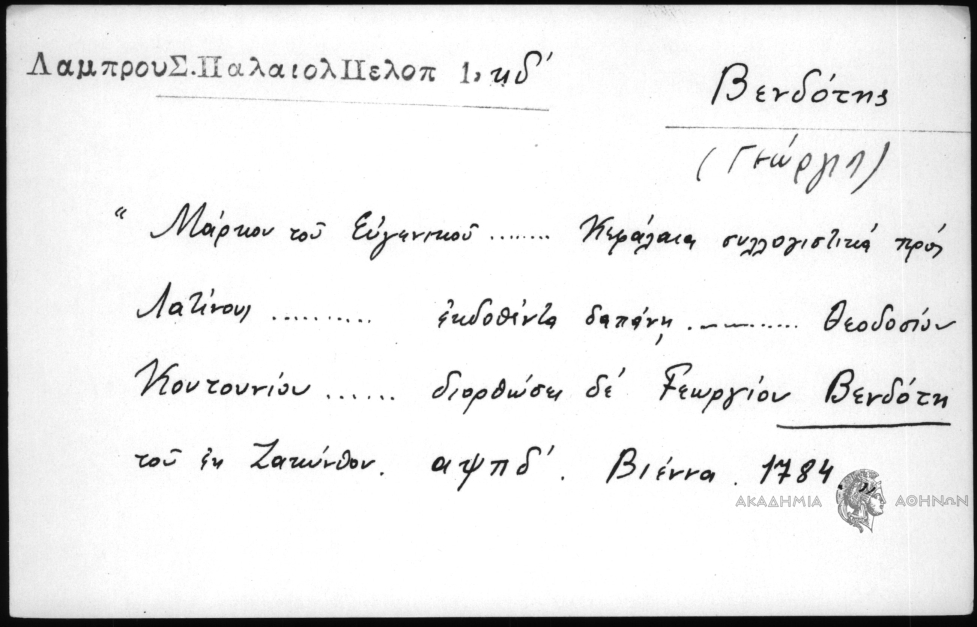 ΛαμπρουΣ.ΠαλαιολΠελοπ 1, κδ΄
Βενδότης
(Γεώργιος)
“ Μάρκου τοῦ Εὐγενικοῦ ........ Κεφάλαια συλλογιστικά πρός
Λατίνους .......... ἐκδοθέντα δαπάνῃ ........... Θεοδοσίου
Κουτουνίου ...... διορθώσει δέ Γεωργίου Βενδότη
τοῦ ἐκ Ζακύνθου. αψπδ΄. Βιέννα. 1784. ”
ΑΚΑΔΗΜΙΑ ΑΘΗΝΩΝ